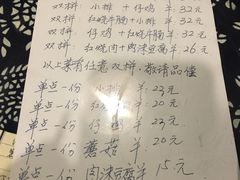 双拼: 小排 + 仔鸡 ¥: 32元
双拼: 红烧牛腩 + 小排 ¥: 32元
双拼: 仔鸡 + 红烧牛腩 ¥: 32元
双拼: 红烧肉+肉沫豆腐 ¥ 26元
以上菜有任意双拼,敬请品偿
单点一份 小排 ¥ 23元
单点一份 红烧肉 ¥ 20元
单点一份 仔鸡 ¥ 23元
单点一份 蘑菇 ¥ 20元
单点一份 肉沫豆腐 ¥ 15元